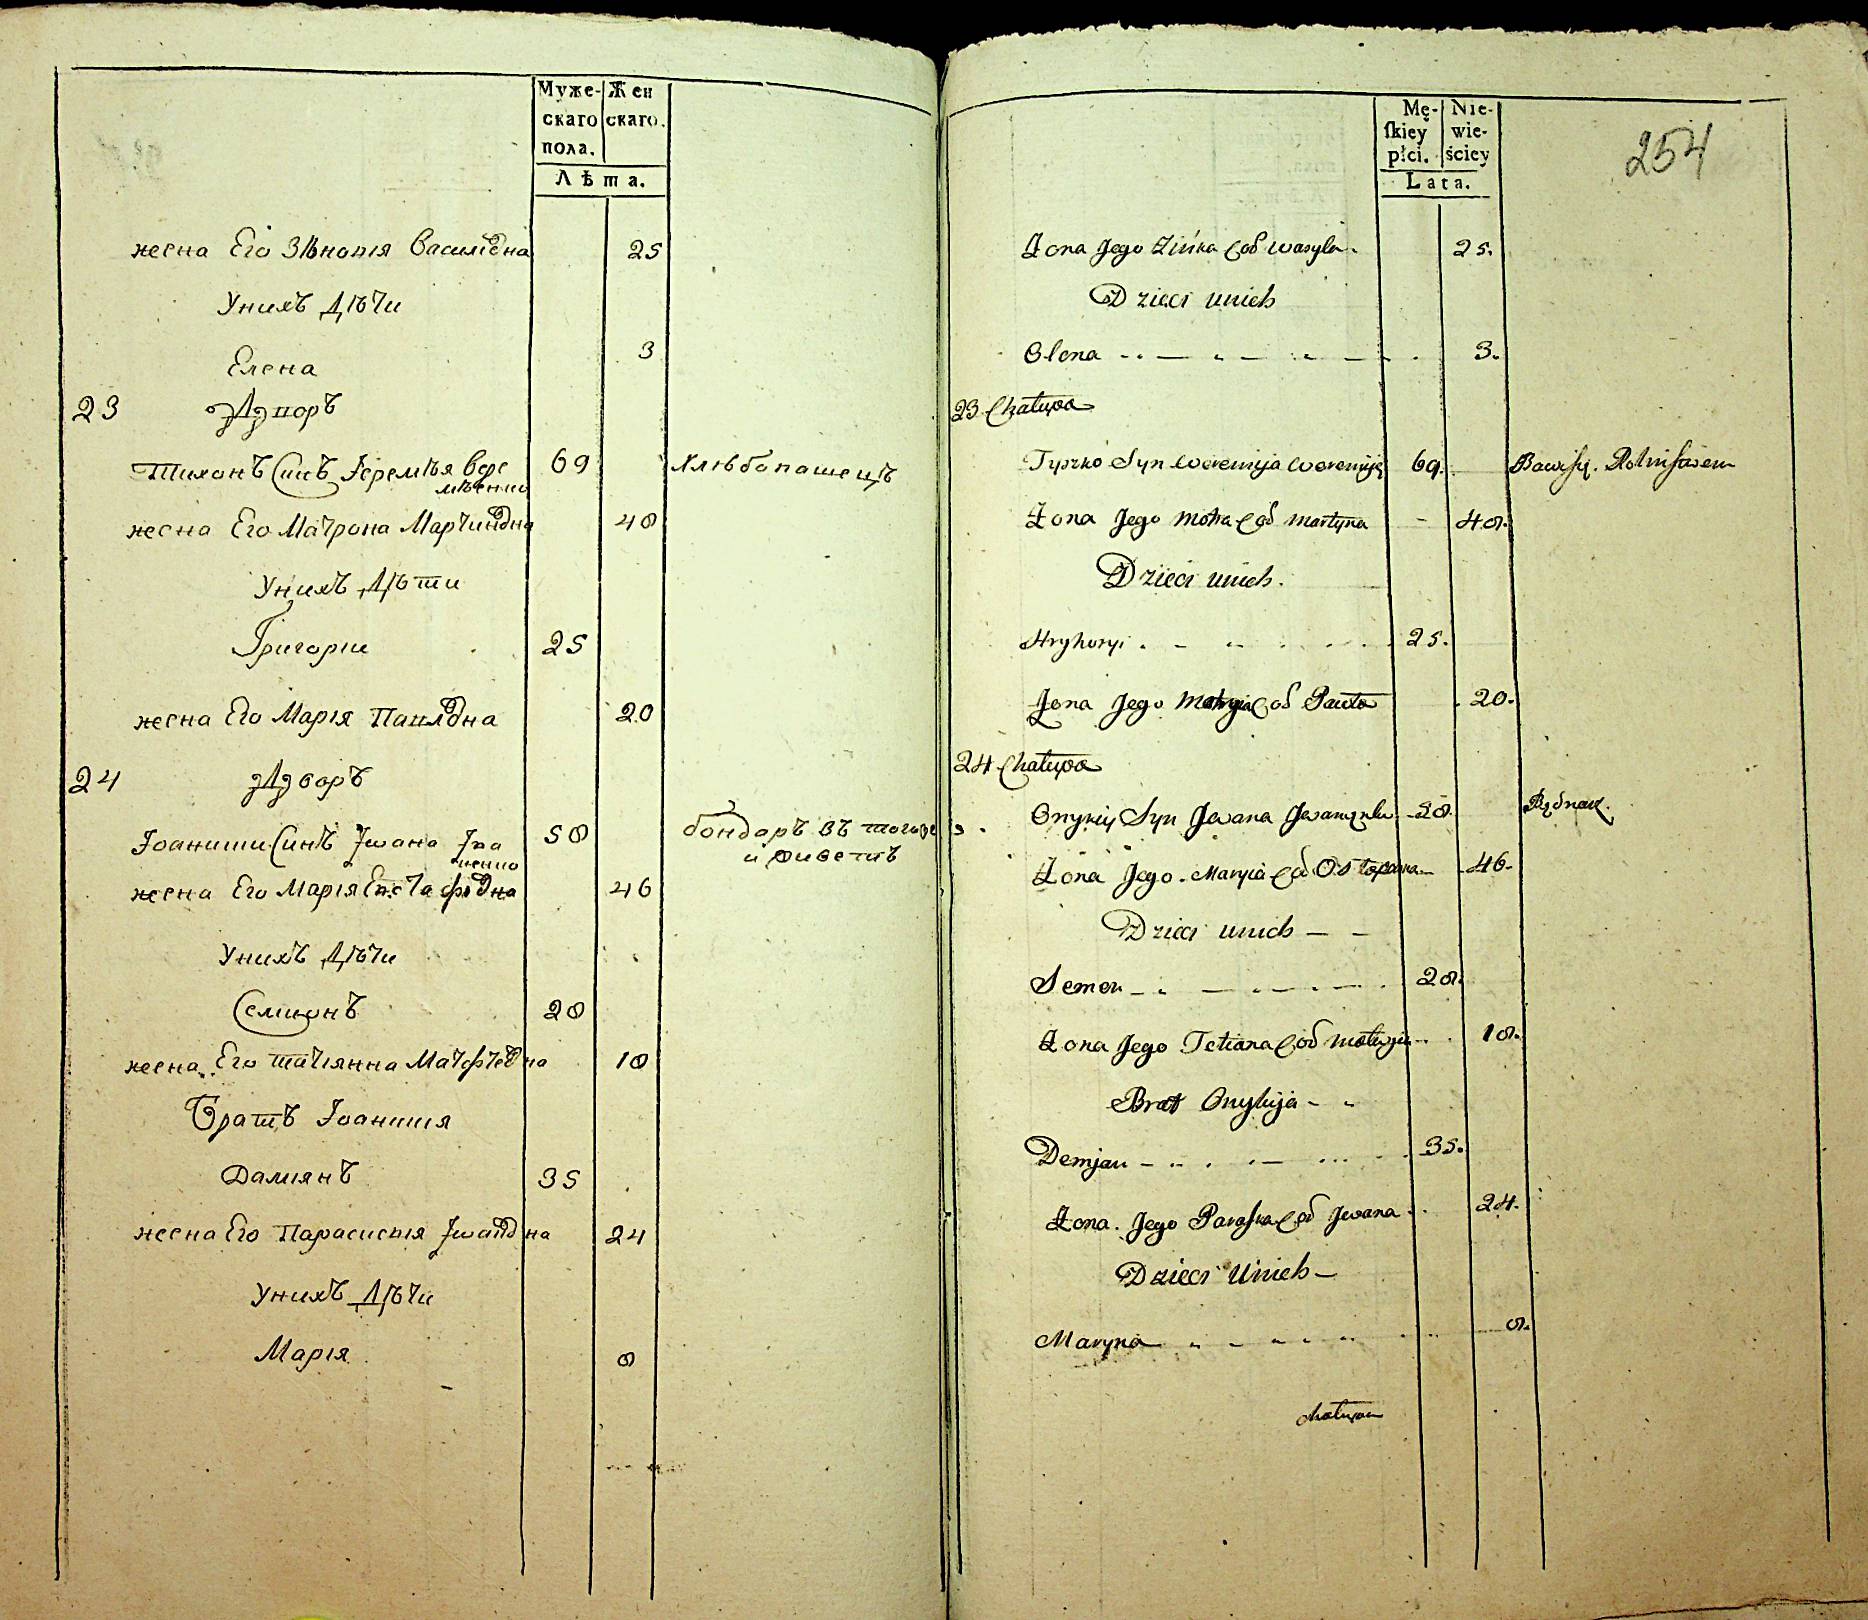 Муже-
скаго
пола.
Жен
скаго.
Лѣта.
жена Его Зѣновия Василѣвна 25
Унихъ Дѣти
Елена 3
23 Дворъ
Тихонъ Синъ Јеремѣя Вере
мѣенко 69 Хлѣбопашецъ
жена Его Матрона Мартиновна 48
Унихъ Дѣти
Григории 25
жена Его Марія Павловна 20
24 Дворъ
Синъ Јвана Јва
ненко 58 бондаръ
жена Его Марія Евстафовна 46
Унихъ Дѣти
Семионъ 28
жена Его татіянна Матфѣевна 18
Братъ
Даміянъ 35
жена Его Парасковія Јвановна 24
Унихъ Дѣти
Марія 8
Mę-
ſkiey
płci.
Nie-
wie-
ściey
Lata.
254
Żona Jego Zińka Cod Wasyla. 25.
Dzieci unich
Olena 3.
23 Chałupa
Tyszko Syn Weremija 69. Bawi się Rolnictwem
Żona Jego Motra Cod Martyna 48.
Dzieci unich.
Hryhoryi 25.
Żona Jego Cod Pawła 20.
24 Chałupa
Syn Jwana 58. Bednarz.
Żona Jego Maryia Cod Ostapa 46.
Dzieci unich
Semen 28.
Żona Jego Tetiana Cod Matwyia 18.
Brat Onykija
Demjan 35.
Żona Jego Paraska Cod Jwana 24.
Dzieci Unich
Maryna 8.
chałupa